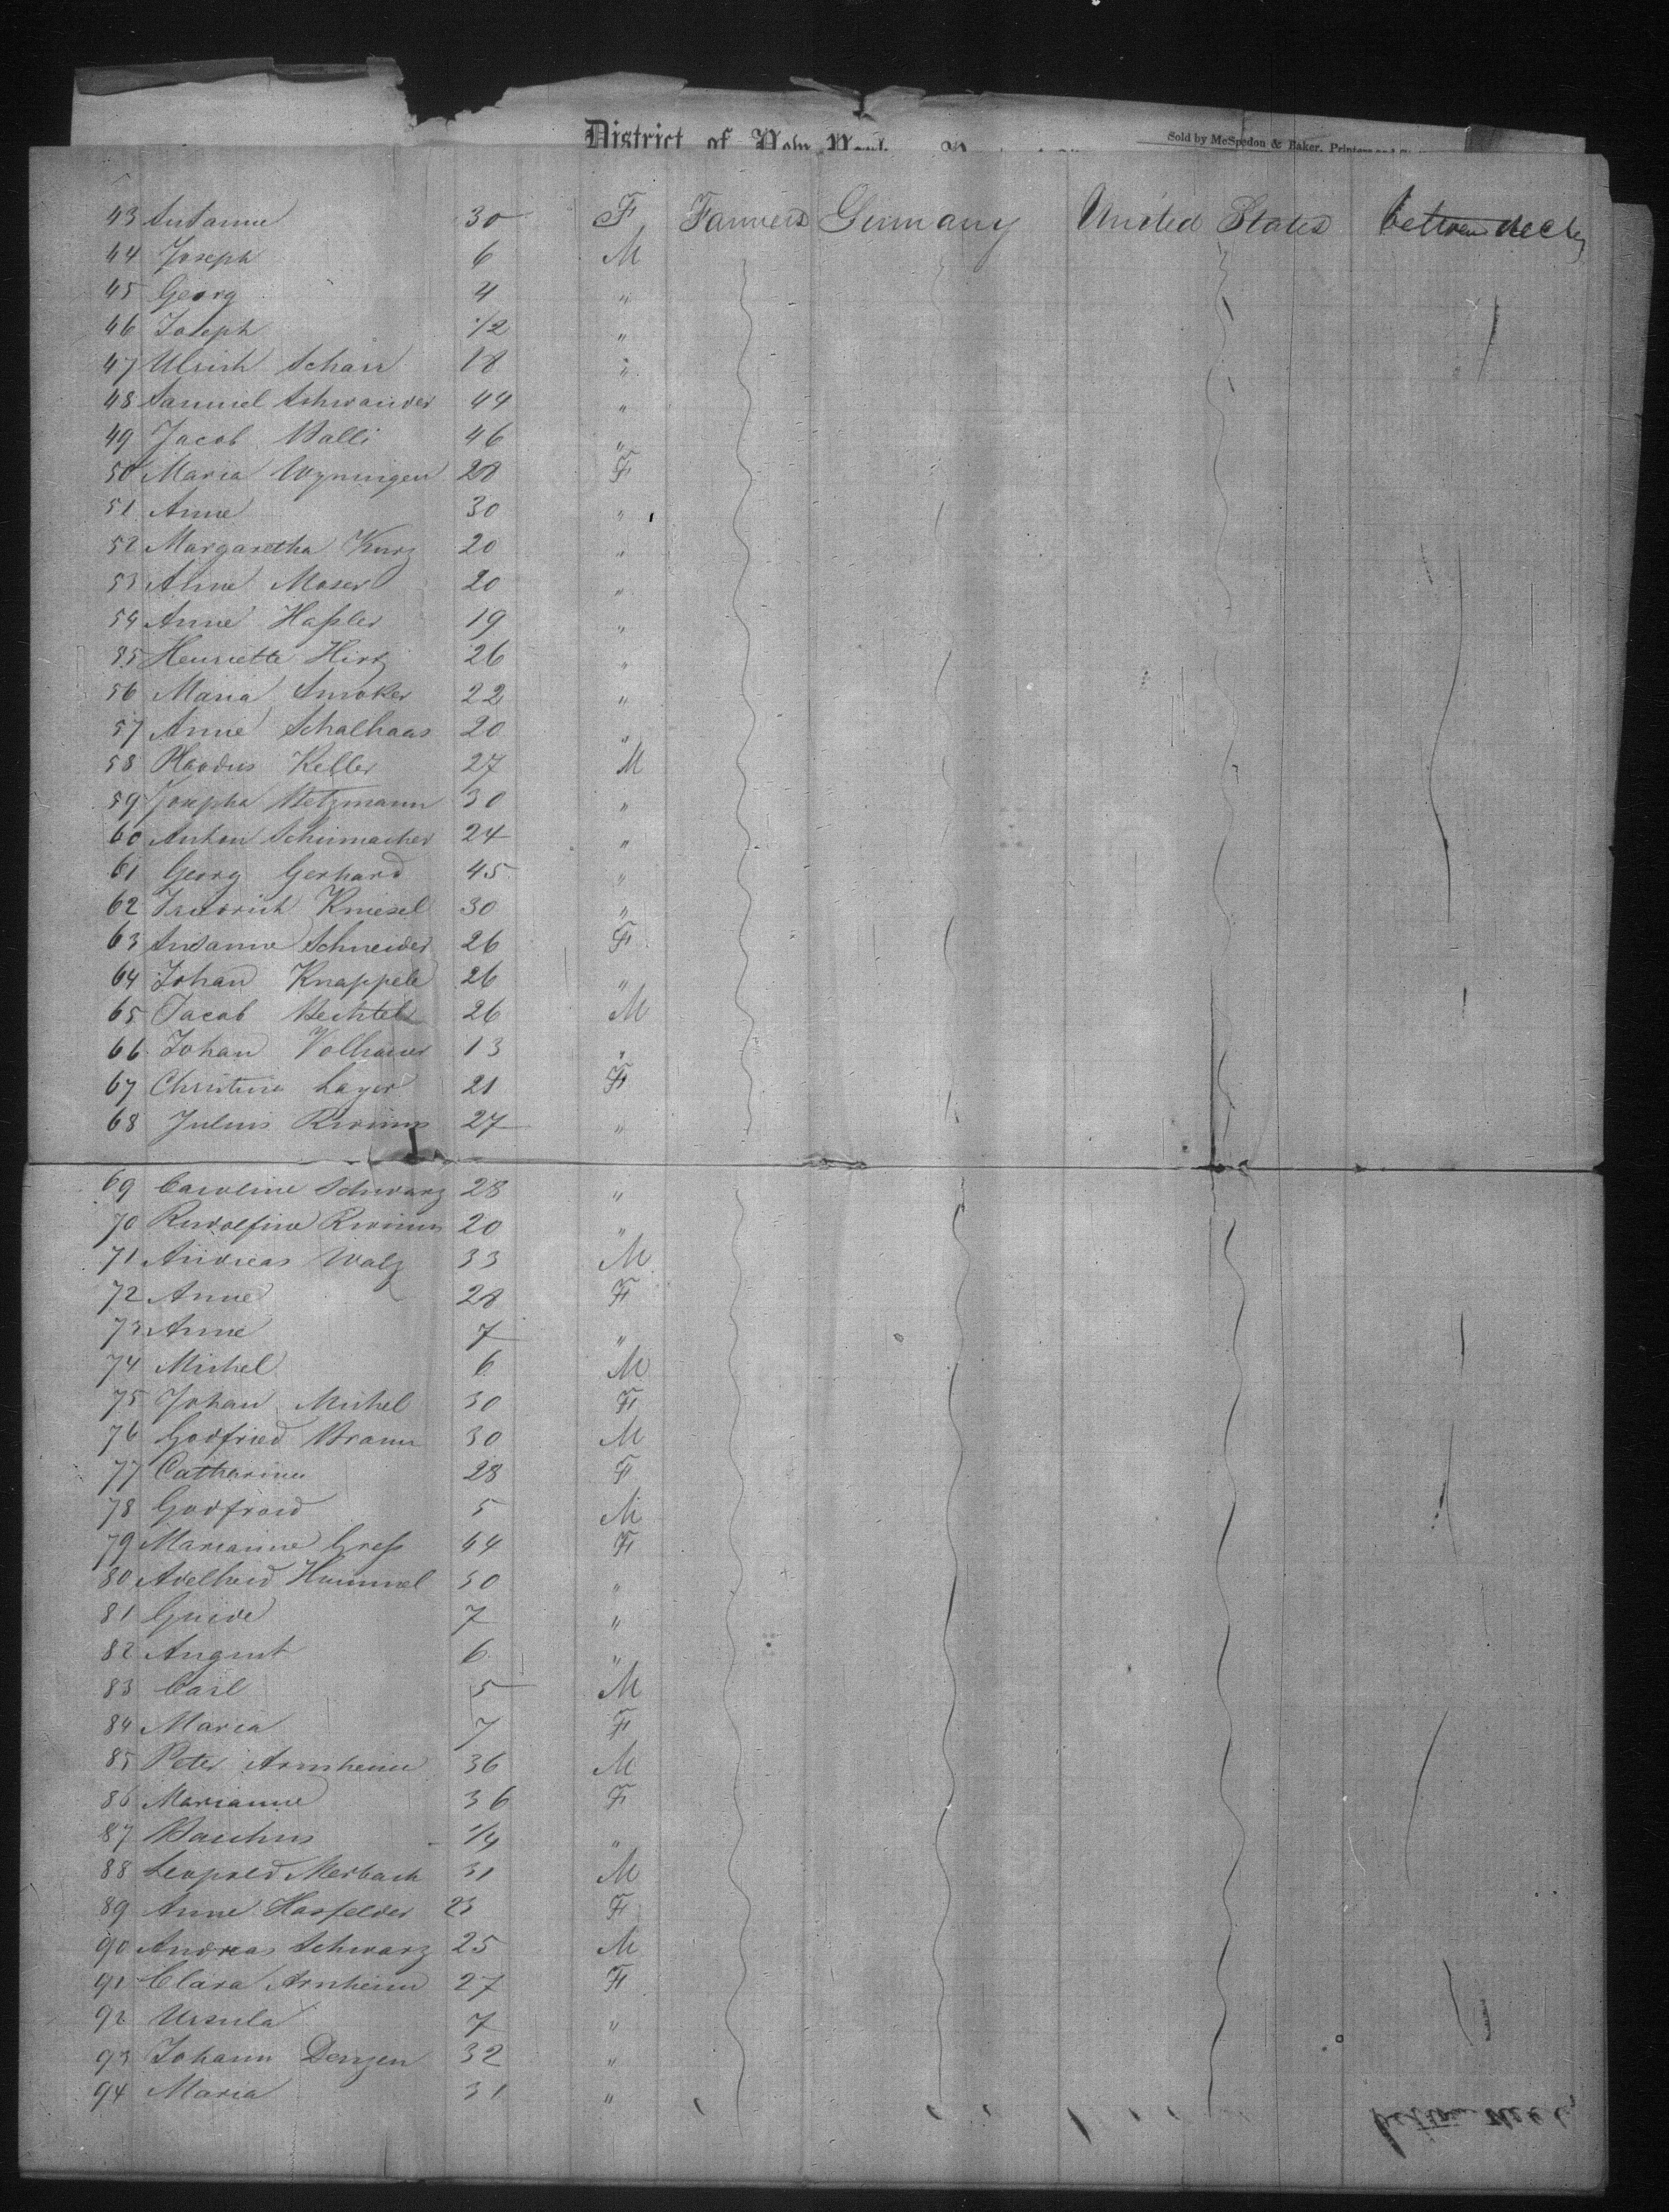 District of New York
Sold by McSpedon & Baker, Printers and
43 Susanne 30 F Farmers Germany United States between decks
44 Joseph 6 M
45 Georg 4 "
46 Joseph 1/2 "
47 Ulrich Scharr 18 "
48 Samuel Schwander 44 "
49 Jacob Walli 46 "
50 Maria Wyningen 28 F
51 Anne 30 "
52 Margaretha Kurz 20 "
53 Anne Moser 20 "
54 Anne Haßler 19 "
55 Henriette Hirz 26 "
56 Maria Smoker 22 "
57 Anne Schalhaas 20 "
58 Keller 27 M
59 Josepha Metzmann 30 "
60 Anton Schumacher 24 "
61 Georg Gerhard 45 "
62 Friedrich Kniesel 30 "
63 Susanne Schneider 26 F
64 Johan Knappele 26 "
65 Jacob Bechtel 26 M
66 Johan Volhauer 13 "
67 Christine Layer 21 F
68 Julius Rivinus 27 "
69 Caroline Schwarz 28 "
70 Rudolfine Rivinus 20 "
71 Andreas Walz 33 M
72 Anne 28 F
73 Anne 7 "
74 Michel 6 M
75 Johan Michel 30 F
76 Godfried Braun 30 M
77 Catharine 28 F
78 Godfroid 5 M
79 Marianne Greß 44 F
80 Adelheid Hummel 30 "
81 Guide 7 "
82 August 6 "
83 Carl 5 M
84 Maria 7 F
85 Peter Arnheim 36 M
86 Marianne 36 F
87 1/4 "
88 Leopold Merbach 31 M
89 Anne Hasfelder 23 F
90 Andreas Schwarz 25 M
91 Clara Arnheim 27 F
92 Ursula 7 "
93 Johann Denzen 32 "
94 Maria 31 "